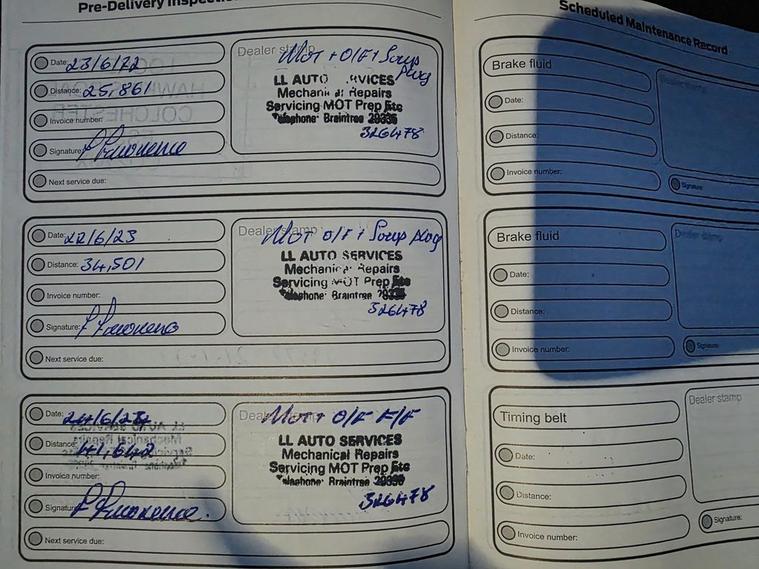 Pre-Delivery Inspection
Date: 23/6/22
Distance: 25,861
Invoice number:
Signature:
Next service due:
Dealer stamp
MOT + O/F + Sump plug
LL AUTO SERVICES
Mechanical Repairs
Servicing MOT Prep Etc
Telephone: Braintree
326478
Date: 22/6/23
Distance: 34,501
Invoice number:
Signature:
Next service due:
Dealer stamp
MOT O/F + Sump plug
LL AUTO SERVICES
Mechanical Repairs
Servicing MOT Prep Etc
Telephone: Braintree
326478
Date: 24/6/24
Distance: 41,642
Invoice number:
Signature:
Next service due:
Dealer stamp
MOT + O/F F/F
LL AUTO SERVICES
Mechanical Repairs
Servicing MOT Prep Etc
Telephone: Braintree
326478
Scheduled Maintenance Record
Brake fluid
Date:
Distance:
Invoice number:
Dealer stamp
Signature:
Brake fluid
Date:
Distance:
Invoice number:
Dealer stamp
Signature:
Timing belt
Date:
Distance:
Invoice number:
Dealer stamp
Signature: